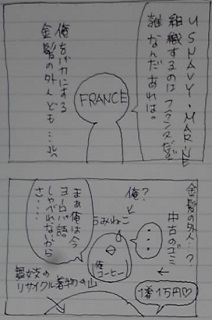 USNAVY・MARINE
組織するのはフランスだな
誰なんだあれは。
FRANCE
俺をバカにする
金髪の外人ども…次
金髪の外人…?
中古のユミ
俺?
うみねこ
・・・
俺コーヒー
1億1万円♡
まぁ俺は今
ヨーロッパ語
しゃべれないから
さ…
舞妓の
リサイクル着物の山